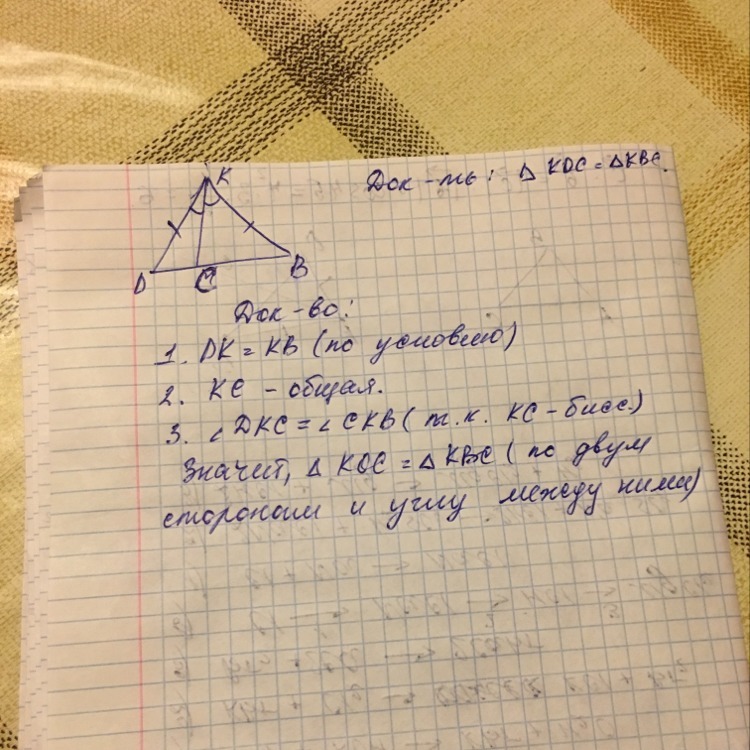 Док-ть: △ KDC = △KBC.
K
D C B
Док-во:
1. DK = KB (по условию)
2. KC - общая.
3. ∠DKC = ∠CKB (т.к. KC - бисс.)
Значит, △ KDC = △ KBC (по двум
сторонам и углу между ними)